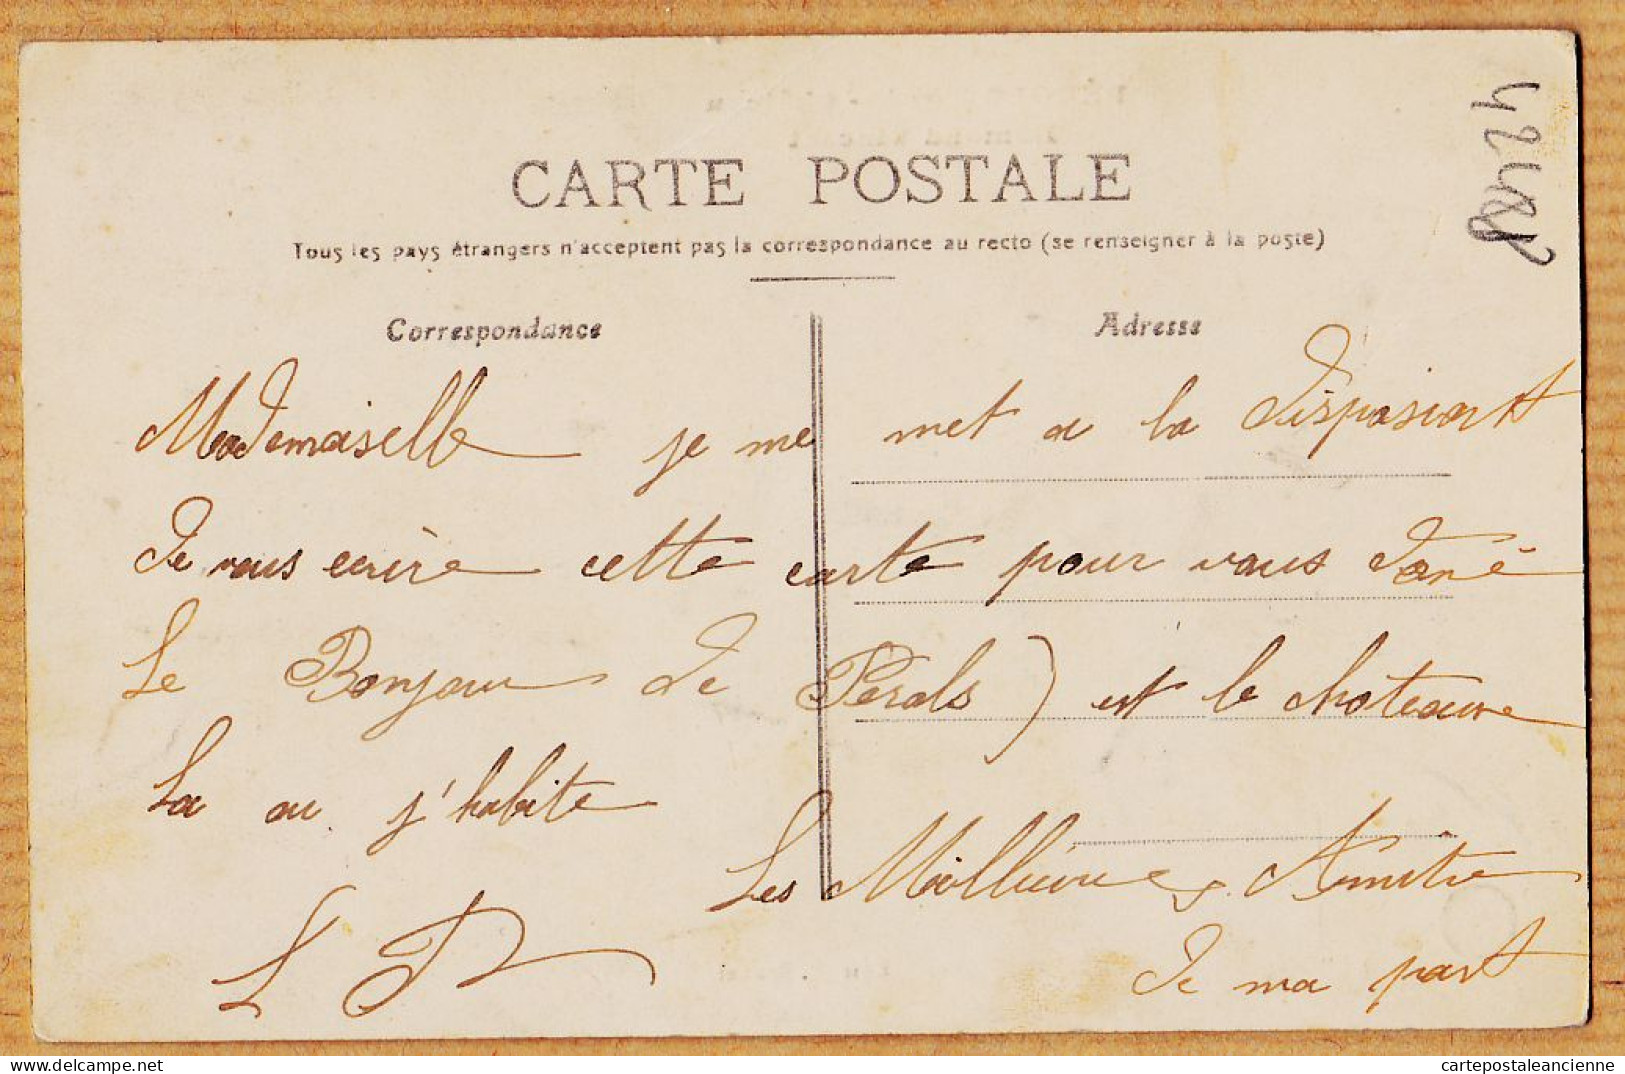 CARTE POSTALE
Tous les pays étrangers n'acceptent pas la correspondance au recto (se renseigner à la poste)
Correspondance
Adresse
Mademoiselle je me met a la
De vous ecrire cette carte pour vous doné
Le Bonjour de Perols) est le chateaure
La ou j'habite
Les Meillieure Amitre
De ma part
cartepostaleancienne